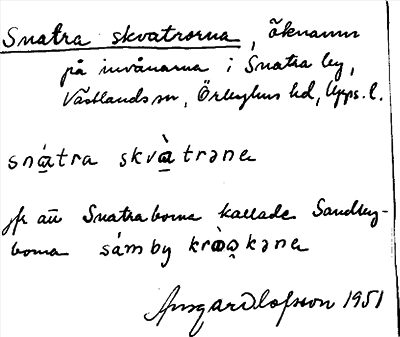 Snatra skvatrorna, öknamn
på invånarna i Snatra by,
Västlands sn, Örbyhus hd, Upps. l.
snátra skvàtrəne
jfr att Snatraborna kallade Sandby-
borna sámby kròo̯kəne
Ansgar Olofsson 1951